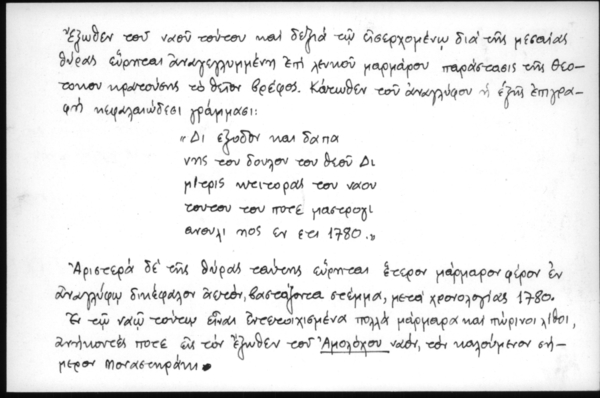 Ἔξωθεν τοῦ ναοῦ τούτου καὶ δεξιά τῷ εἰσερχομένῳ διά τῆς μεσαίας
θύρας εὕρηται ἀναγεγλυμμένη ἐπί λευκοῦ μαρμάρου παράστασις τῆς Θεο-
τόκου κρατούσης τὸ θεῖον βρέφος. Κάτωθεν τοῦ ἀναγλύφου ἡ ἑξῆς ἐπιγρα-
φή κεφαλαιώδεσι γράμμασι:
"Δι εξοδον και δαπα
νης του δουλου του θεοῦ Δι
μίτρις κτιτορας του ναου
τουτου του ποτέ μαστρογι
ανουλι ηος εν ετι 1780."
Ἀριστερά δέ τῆς θύρας ταύτης εὕρηται ἕτερον μάρμαρον φέρον ἐν
ἀναγλύφῳ δικέφαλον ἀετόν, βαστάζοντα στέμμα, μετά χρονολογίας 1780.
Ἐν τῷ ναῷ τούτῳ εἶναι ἐντετοιχισμένα πολλά μάρμαρα καί πώρινοι λίθοι,
ἀνήκοντές ποτε εἰς τόν ἔξωθεν τοῦ Ἀμολόχου ναόν, τόν καλούμενον σή-
μερον Μοναστηράκι.